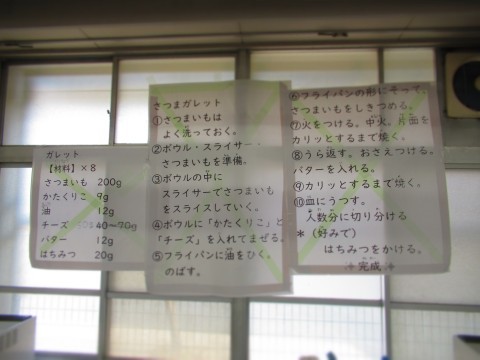 ガレット
【材料】×8
さつまいも 200g
かたくりこ 9g
油 12g
チーズ 40~70g
バター 12g
はちみつ 20g
さつまガレット
①さつまいもは
よく洗っておく。
②ボウル・スライサー・
さつまいもを準備。
③ボウルの中に
スライサーでさつまいも
をスライスしていく。
④ボウルに「かたくりこ」と
「チーズ」を入れてまぜる。
⑤フライパンに油をひく。
のばす。
⑥フライパンの形にそって、
さつまいもをしきつめる。
⑦火をつける。中火。片面を
カリッとするまで焼く。
⑧うら返す。おさえつける。
バターを入れる。
⑨カリッとするまで焼く。
⑩皿にうつす。
人数分に切り分ける
*(好みで)
はちみつをかける。
完成